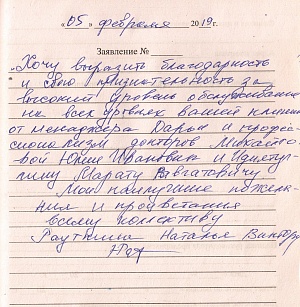 «05» февраля 2019г.
Заявление №
Хочу выразить благодарность
и свою признательность за
высокий уровень обслуживание
на всех уровнях вашей клиники
от менеджера Дарьи и профес
сионализм докторов Михайло
вой Юлии Ивановны и
Марату Вагватовичу
Мои наилучшие пожела
ния и процветания
всему колективу
Наталье Виктор